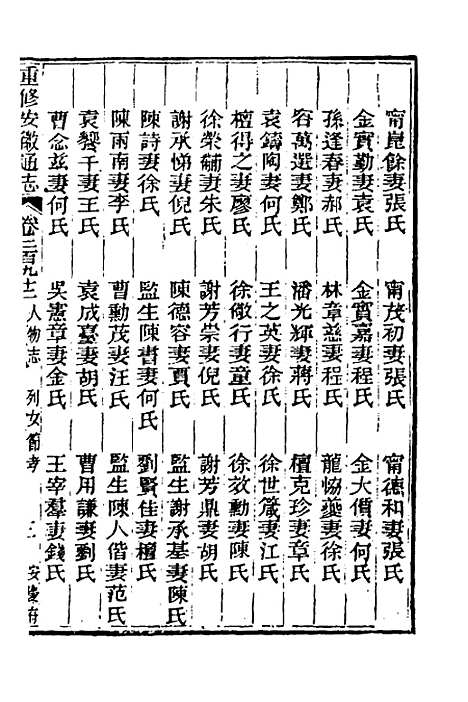 甯崑餘妻張氏　甯茂初妻張氏　甯德和妻張氏
金實勤妻袁氏　金實嘉妻程氏　金大價妻何氏
孫逢春妻郝氏　林章慈妻程氏　龍協夔妻徐氏
容萬選妻鄭氏　潘光輝妻蔣氏　檀克珍妻章氏
袁鑄陶妻何氏　王之英妻徐氏　徐世箴妻江氏
檀得之妻廖氏　徐敬行妻童氏　徐效勳妻陳氏
徐榮黼妻朱氏　謝芳崇妻倪氏　謝芳鼎妻胡氏
謝承悌妻倪氏　陳德容妻賈氏　監生謝承基妻陳氏
陳詩妻徐氏　監生陳書妻何氏　劉賢佳妻檀氏
陳雨南妻李氏　曹勳茂妻汪氏　監生陳人偕妻范氏
袁饗千妻王氏　袁成臺妻胡氏　曹用謙妻劉氏
曹念茲妻何氏　吳憲章妻金氏　王宰羣妻錢氏
重修安徽通志　卷二百九十二　人物志　列女節孝　三　安慶府